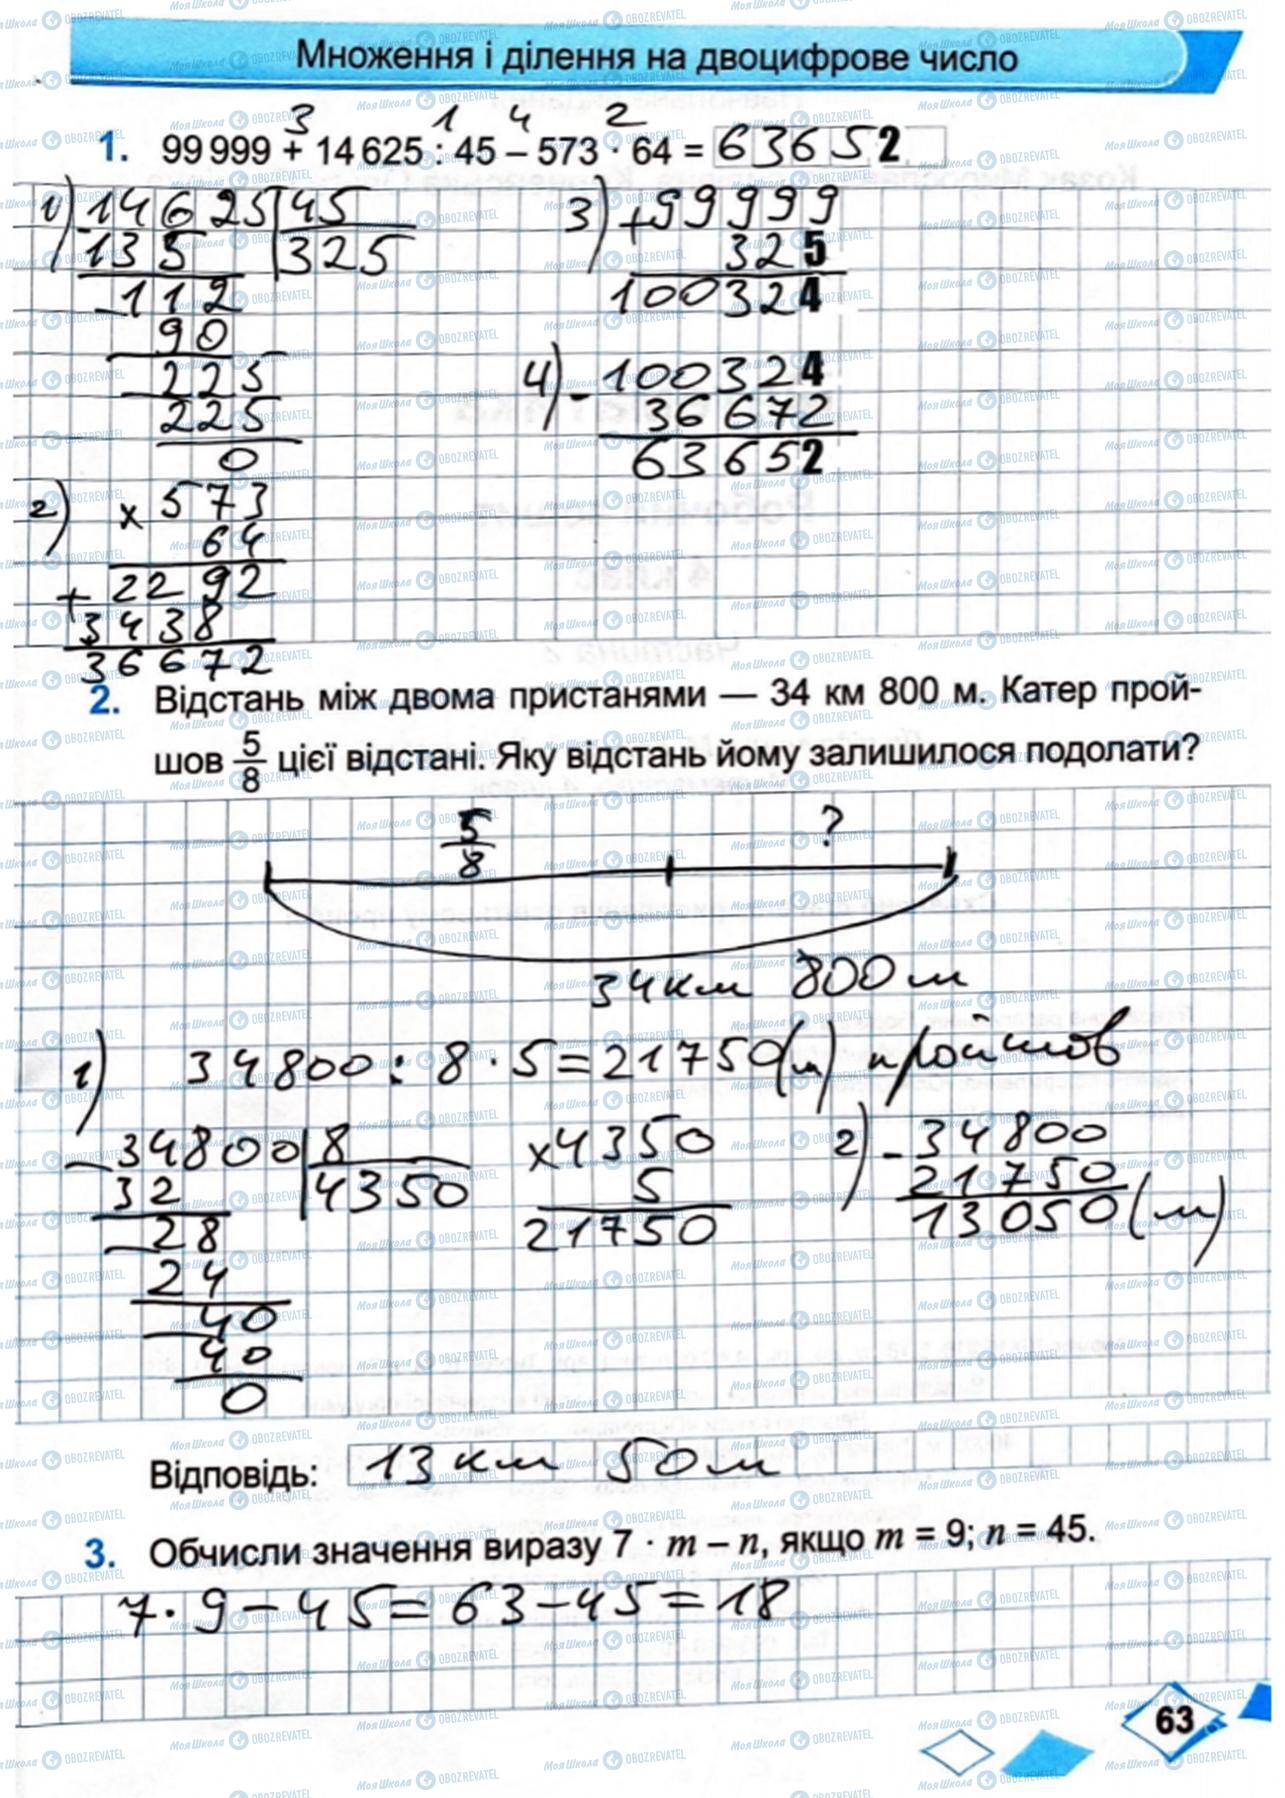 Множення і ділення на двоцифрове число
3 1 4 2
1. 99 999 + 14 625 : 45 – 573 · 64 = 63652
1) 14625 | 45
- 135 | 325
- 112
90
- 225
225
0
3) + 99999
325
100324
4) - 100324
36672
63652
2) × 573
64
+ 2292
3438
36672
2. Відстань між двома пристанями — 34 км 800 м. Катер прой-
шов 5/8 цієї відстані. Яку відстань йому залишилося подолати?
5/8 ?
34 км 800 м
1) 34800 : 8 · 5 = 21750 (м) пройшов
- 34800 | 8
32 | 4350
- 28
24
- 40
40
0
× 4350
5
21750
2) - 34800
21750
13050 (м)
Відповідь: 13 км 50 м
3. Обчисли значення виразу 7 · m – n, якщо m = 9; n = 45.
7 · 9 – 45 = 63 – 45 = 18
63
МояШкола OBOZREVATEL